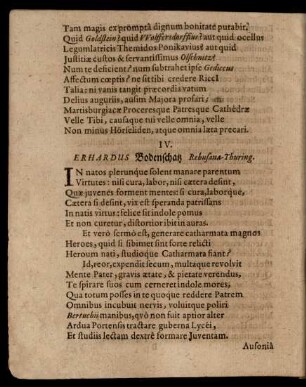 Tam magis ex prompta dignum bonitate putabit.
Quid Goldstein? quid Wolffersdorffius? aut quid ocellus
Legumlatricis Themidos Ponikavius? aut quid
Justitiæ custos & servantissimus Olsebnetz?
Num te deficient? num subtrahet ipse Gedicens
Affectum cœptis? ne sit tibi credere Ricci
Talia: ni vanis tangit præcordia vatum
Delius auguriis, ausim Majora profari;
Martisburgiacæ Proceresque Patresque Cathedræ
Velle Tibi, causæque tui velle omnia, velle
Non minus Hörseliden, atque omnia læta precari.
IV.
ERHARDUS Bodenschatz Rehusana-Thuring.
IN natos plerunque solent manare parentum
Virtutes: nisi cura, labor, nisi cætera desint,
Quæ juvenes forment mentes: si cura, laborque,
Cætera si desint, vix est speranda patrissans
In natis virtus: felice sit indole pomus
Et non curetur, distortior ibit in auras.
Et verò sermo est, generare catharmata magnos
Heroes, quid si sibimet sint forte relicti
Heroum nati, studioque Catharmata fiant?
Id, reor, expendit secum, multaque revolvit
Mente Pater, gravis ætate, & pietate verendus,
Te spirare suos cum cerneret indole mores,
Qua totum posses in te quoque reddere Patrem
Omnibus incubuit nervis, voluitque poliri
Bertuchii manibus, quò non fuit aptior alter
Ardua Portensis tractare guberna Lycéi,
Et studiis lectam dextrè formare Juventam.
Ausoniâ